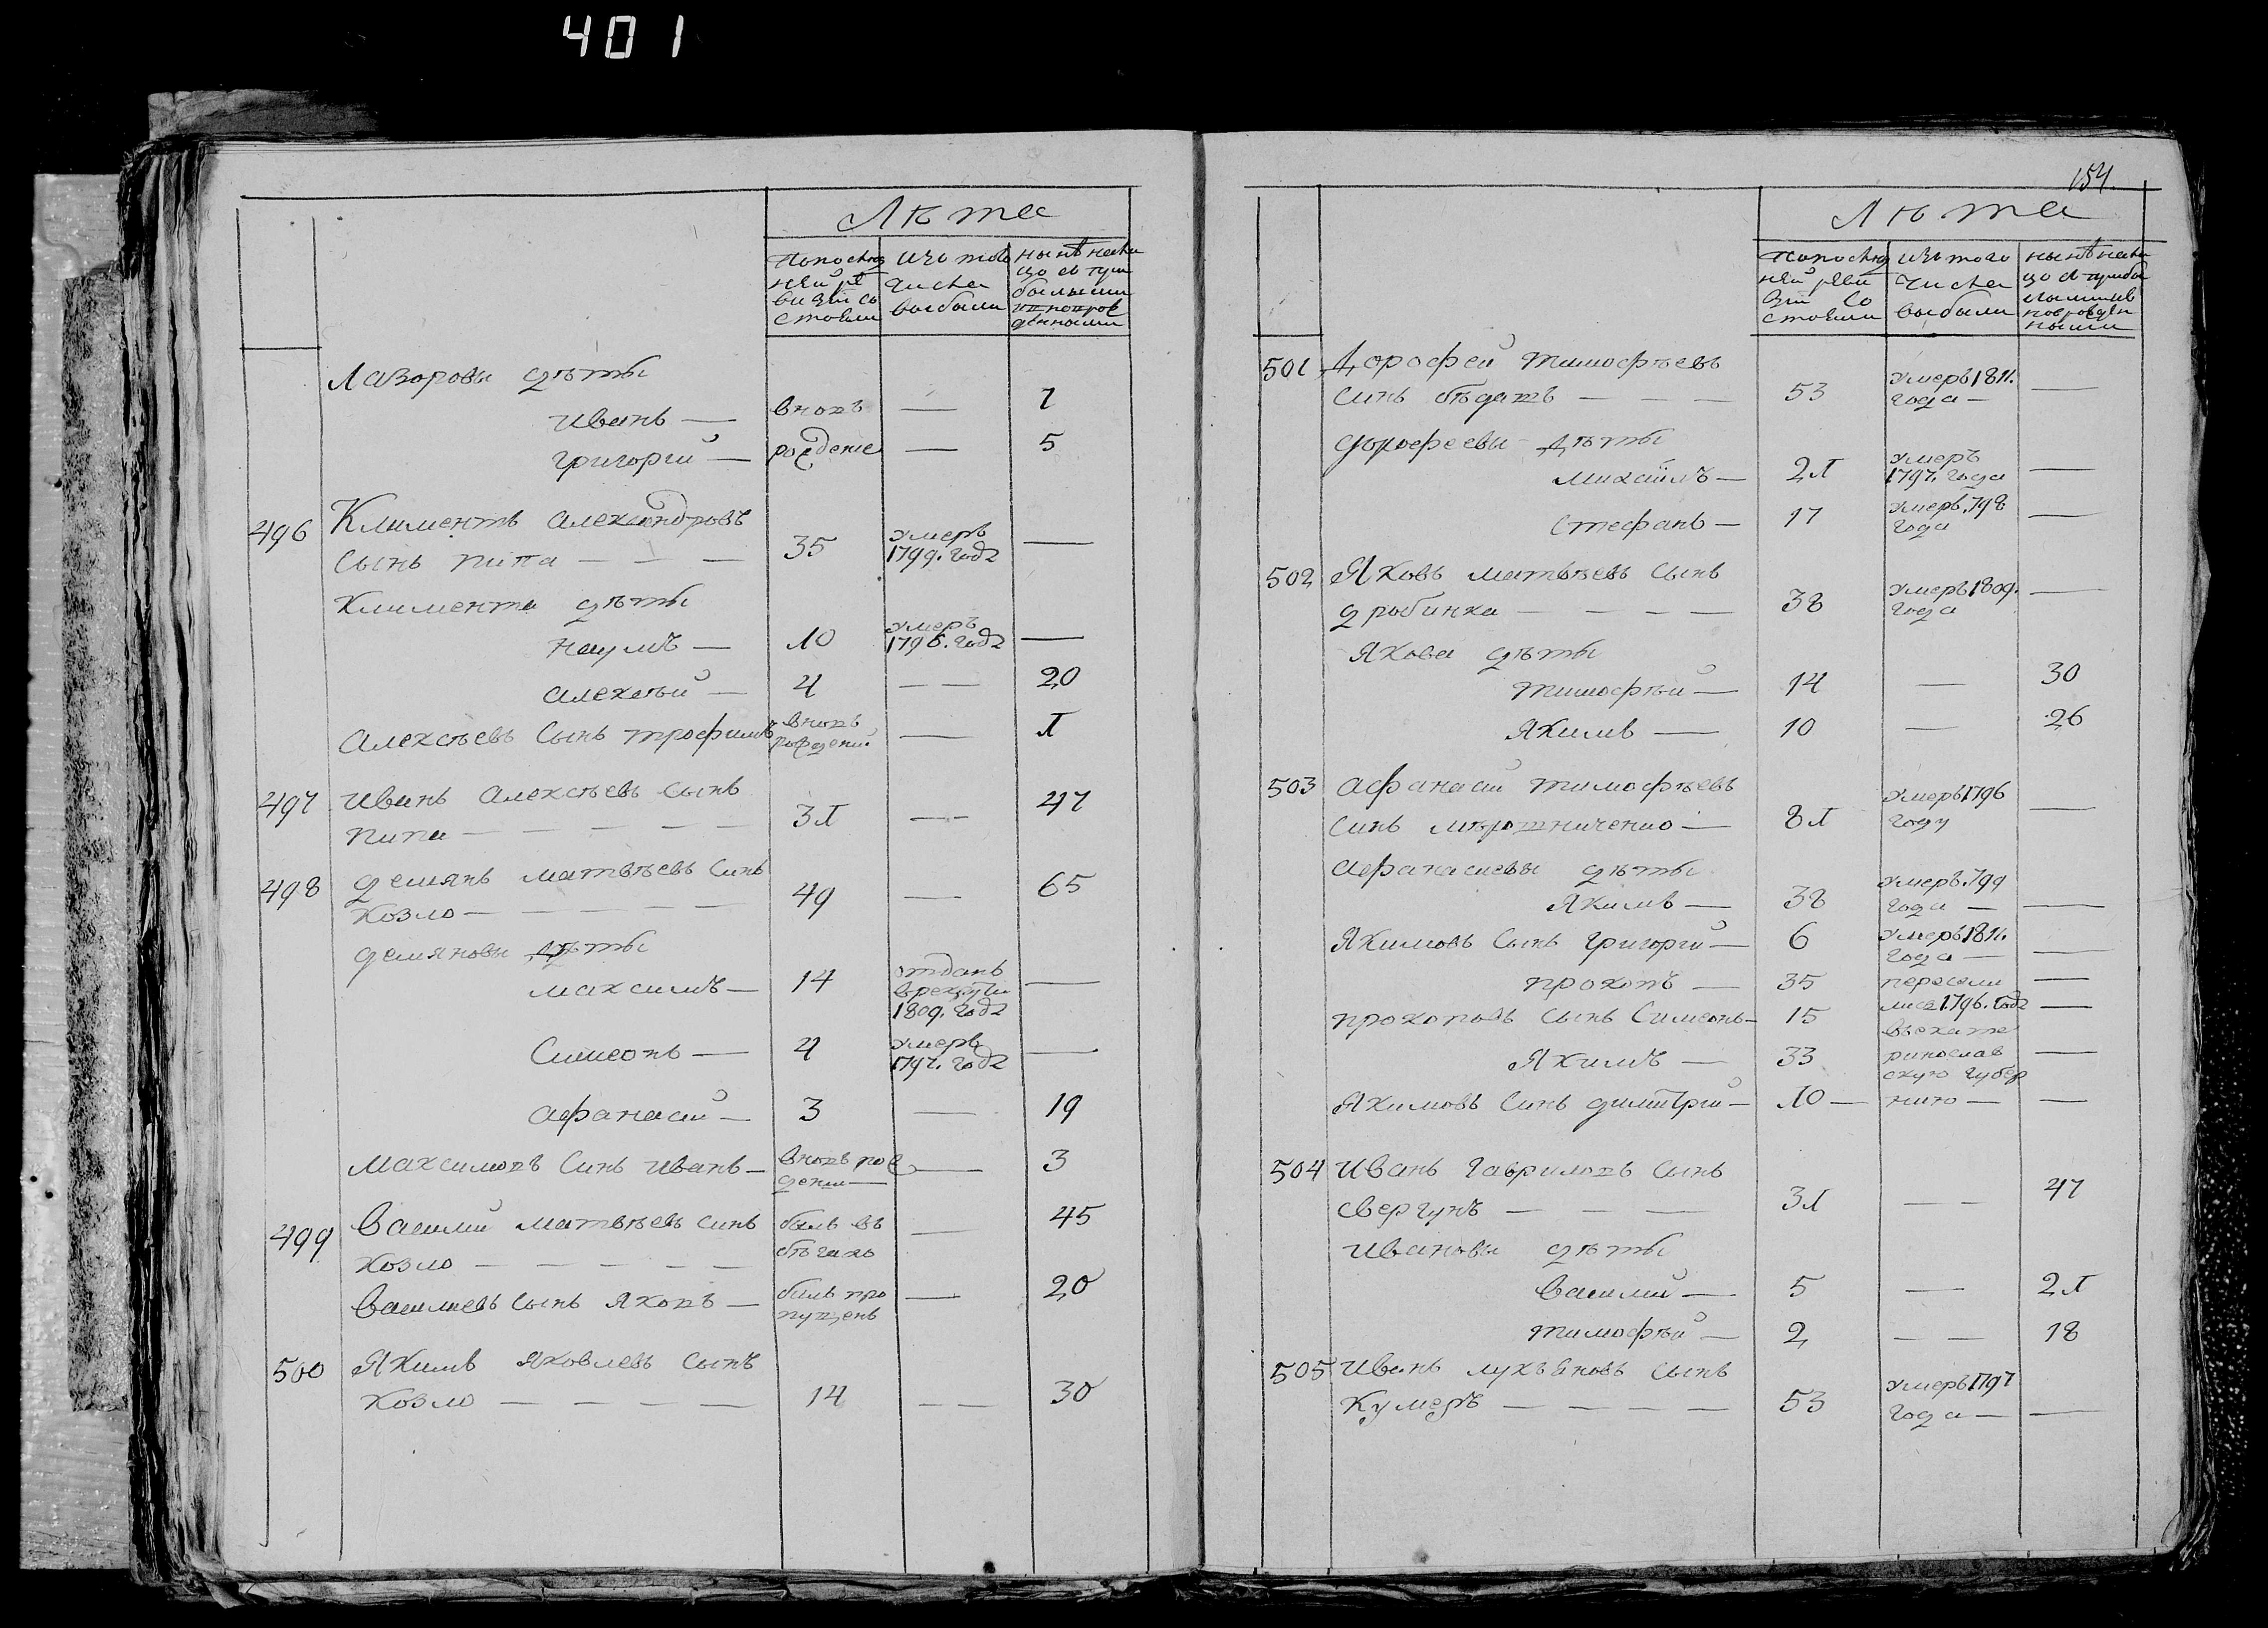 401
Лѣта
Попослед изъ того нынѣ налы
ней ре числа цо съ при
визіи со выбыли былыми
стояли и новорож
денными
Лазоровы дѣты
иванъ — вновь — 7
григорій — рожденіе — 5
496 Климентъ александровъ умеръ
сынъ пипа — — — 35 1799. года —
Климента дѣты
наумъ — 10 умеръ 1796. года —
алексѣй — 4 — — 20
алексѣевъ сынъ трофимъ вновь рожденій — 1
497 иванъ алексѣевъ сынъ
пипа — — — — — 31 — — 47
498 демянъ матвѣевъ синъ
козло — — — — — 49 — 65
демяновы дѣты
максимъ — 14 отданъ в рекруты 1809. года —
Симеонъ — 4 умеръ 1797. года —
афанасій — 3 — 19
максимовъ синъ иванъ — вновь рожденій — — 3
499 василий матвѣевъ синъ былъ въ — 45
козло — — — — — бѣгахъ
василиевъ сынъ яковъ — билъ пропущенъ — 20
500 Якимъ яковлевъ сынъ
козло — — — — — 14 — — 30
154.
Лѣта
Попослед изъ того нынѣ нали
ней реви числа цо съ прибы
зіи со выбыли лыми и
стояли новорожден
ными
501 Дорофей тимофѣевъ
синъ бѣдатъ — — — 53 умеръ 1811. года — —
дорофеевы дѣты
михаилъ — 21 умеръ 1797. года —
стефанъ — 17 умеръ .798 года —
502 Яковъ матвѣевъ сынъ
дробинка — — — — 38 умеръ 1809. года —
якова дѣты
тимофѣй — 14 — 30
якимъ — 10 — 26
503 афанасій тимофѣевъ
синъ мѣрошниченко — 81 умеръ 1796 году —
афанасиевы дѣты
якимъ — 38 умеръ .799 года — —
якимовъ сынъ григорій — 6 умеръ 1811. года — —
прокопъ — 35 пересели —
прокоповъ сынъ Симеонъ — 15 лися 1796. года —
въ екате
якимъ — 33 ринослав —
скую губер
якимовъ синъ димитрій — 10 — нию — —
504 иванъ гавриловъ сынъ
свергунъ — — — 31 — — 47
ивановы дѣты
василий — 5 — 21
тимофѣй — 2 — — 18
505 иванъ лукъяновъ сынъ
кумеръ — — — — 53 умеръ 1797 года — —